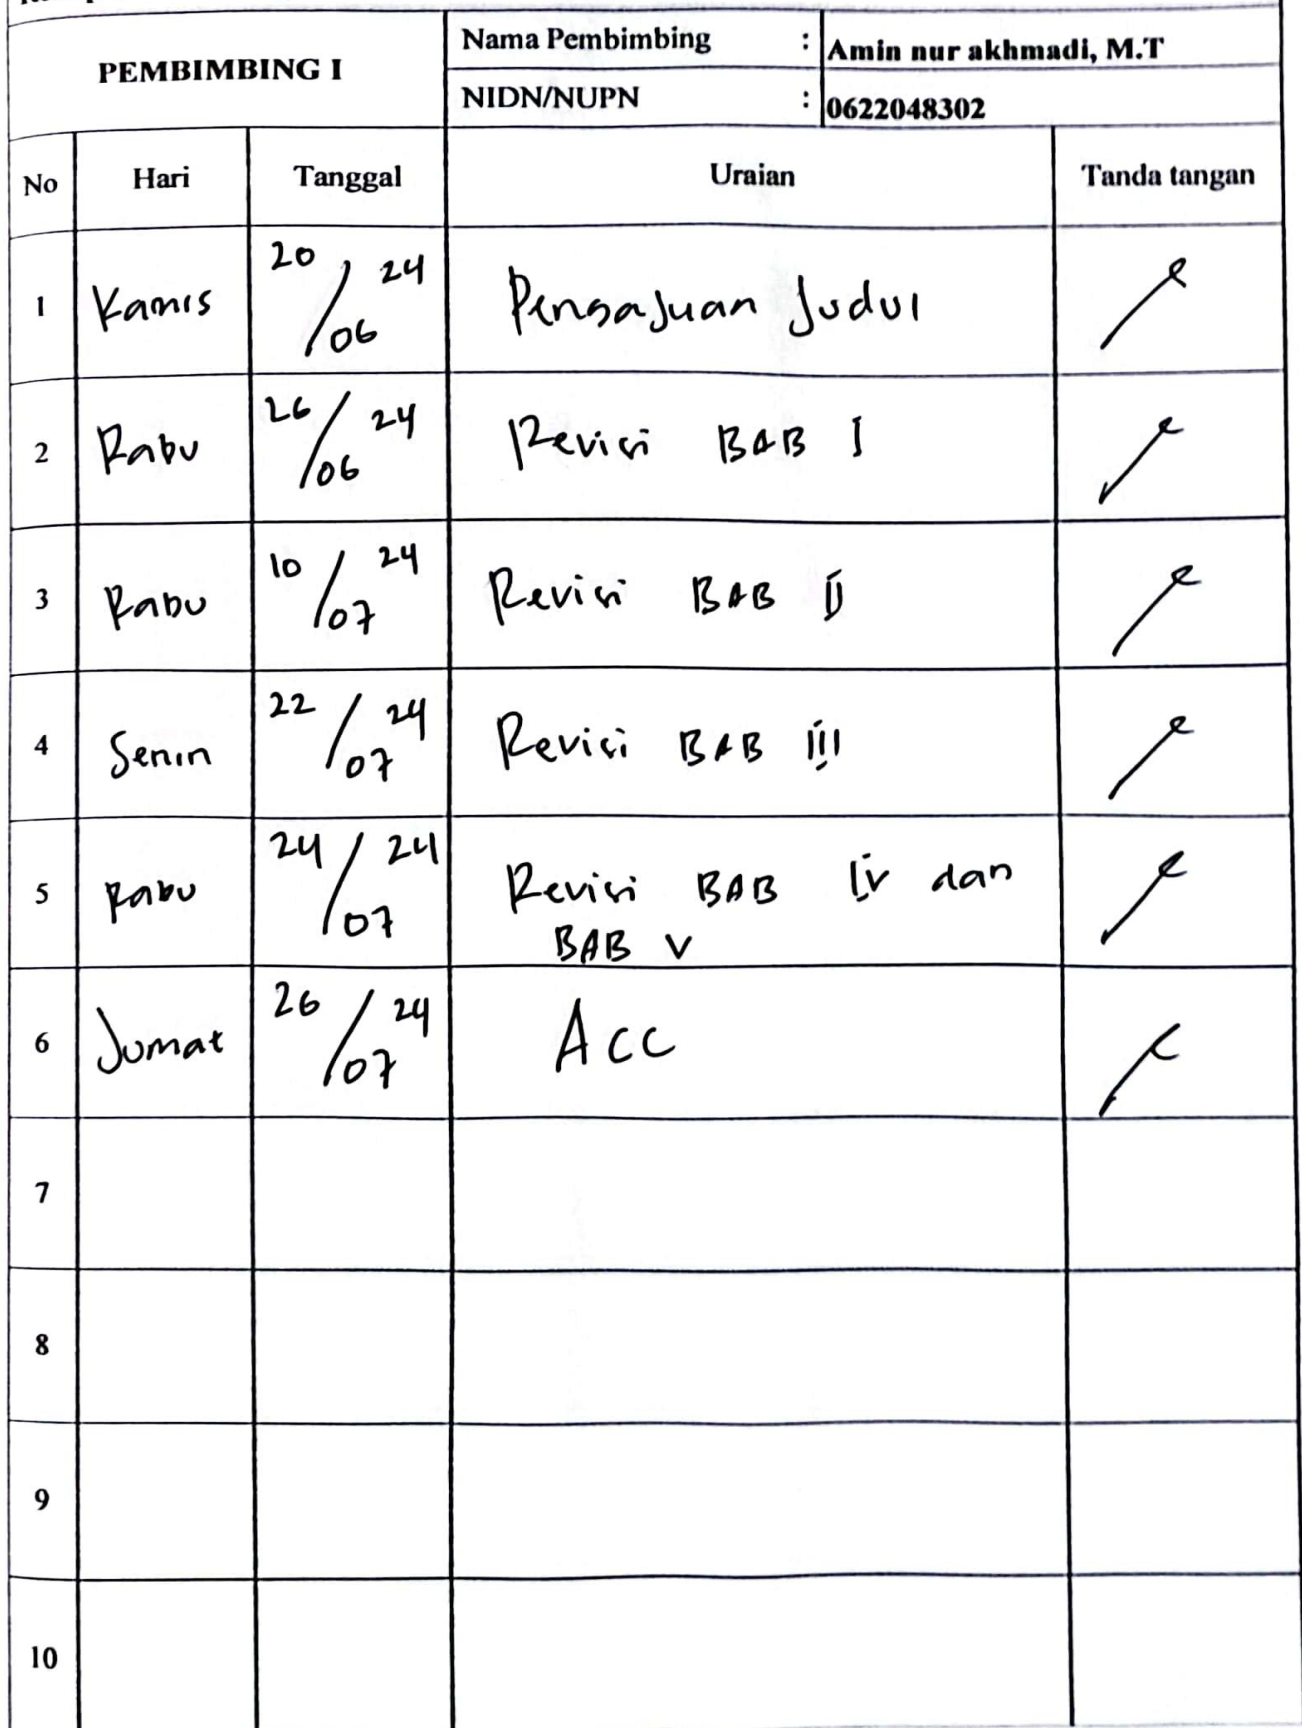 PEMBIMBING I
Nama Pembimbing : Amin nur akhmadi, M.T
NIDN/NUPN : 0622048302
No Hari Tanggal Uraian Tanda tangan
1 Kamis 20/06 24 Pengajuan Judul
2 Rabu 26/06 24 Revisi BAB I
3 Rabu 10/07 24 Revisi BAB II
4 Senin 22/07 24 Revisi BAB III
5 Rabu 24/07 24 Revisi BAB IV dan
BAB V
6 Jumat 26/07 24 Acc
7
8
9
10